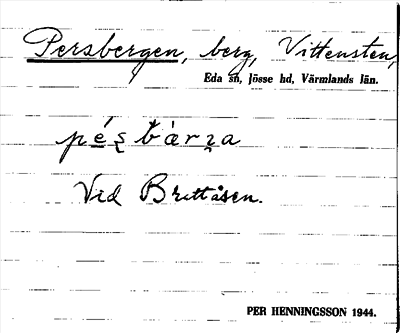 Persbergen, berg, Vittensten,
Eda sn, Jösse hd, Värmlands län.
pés̨bàrz̨a
Vid Brattåsen.
PER HENNINGSSON 1944.